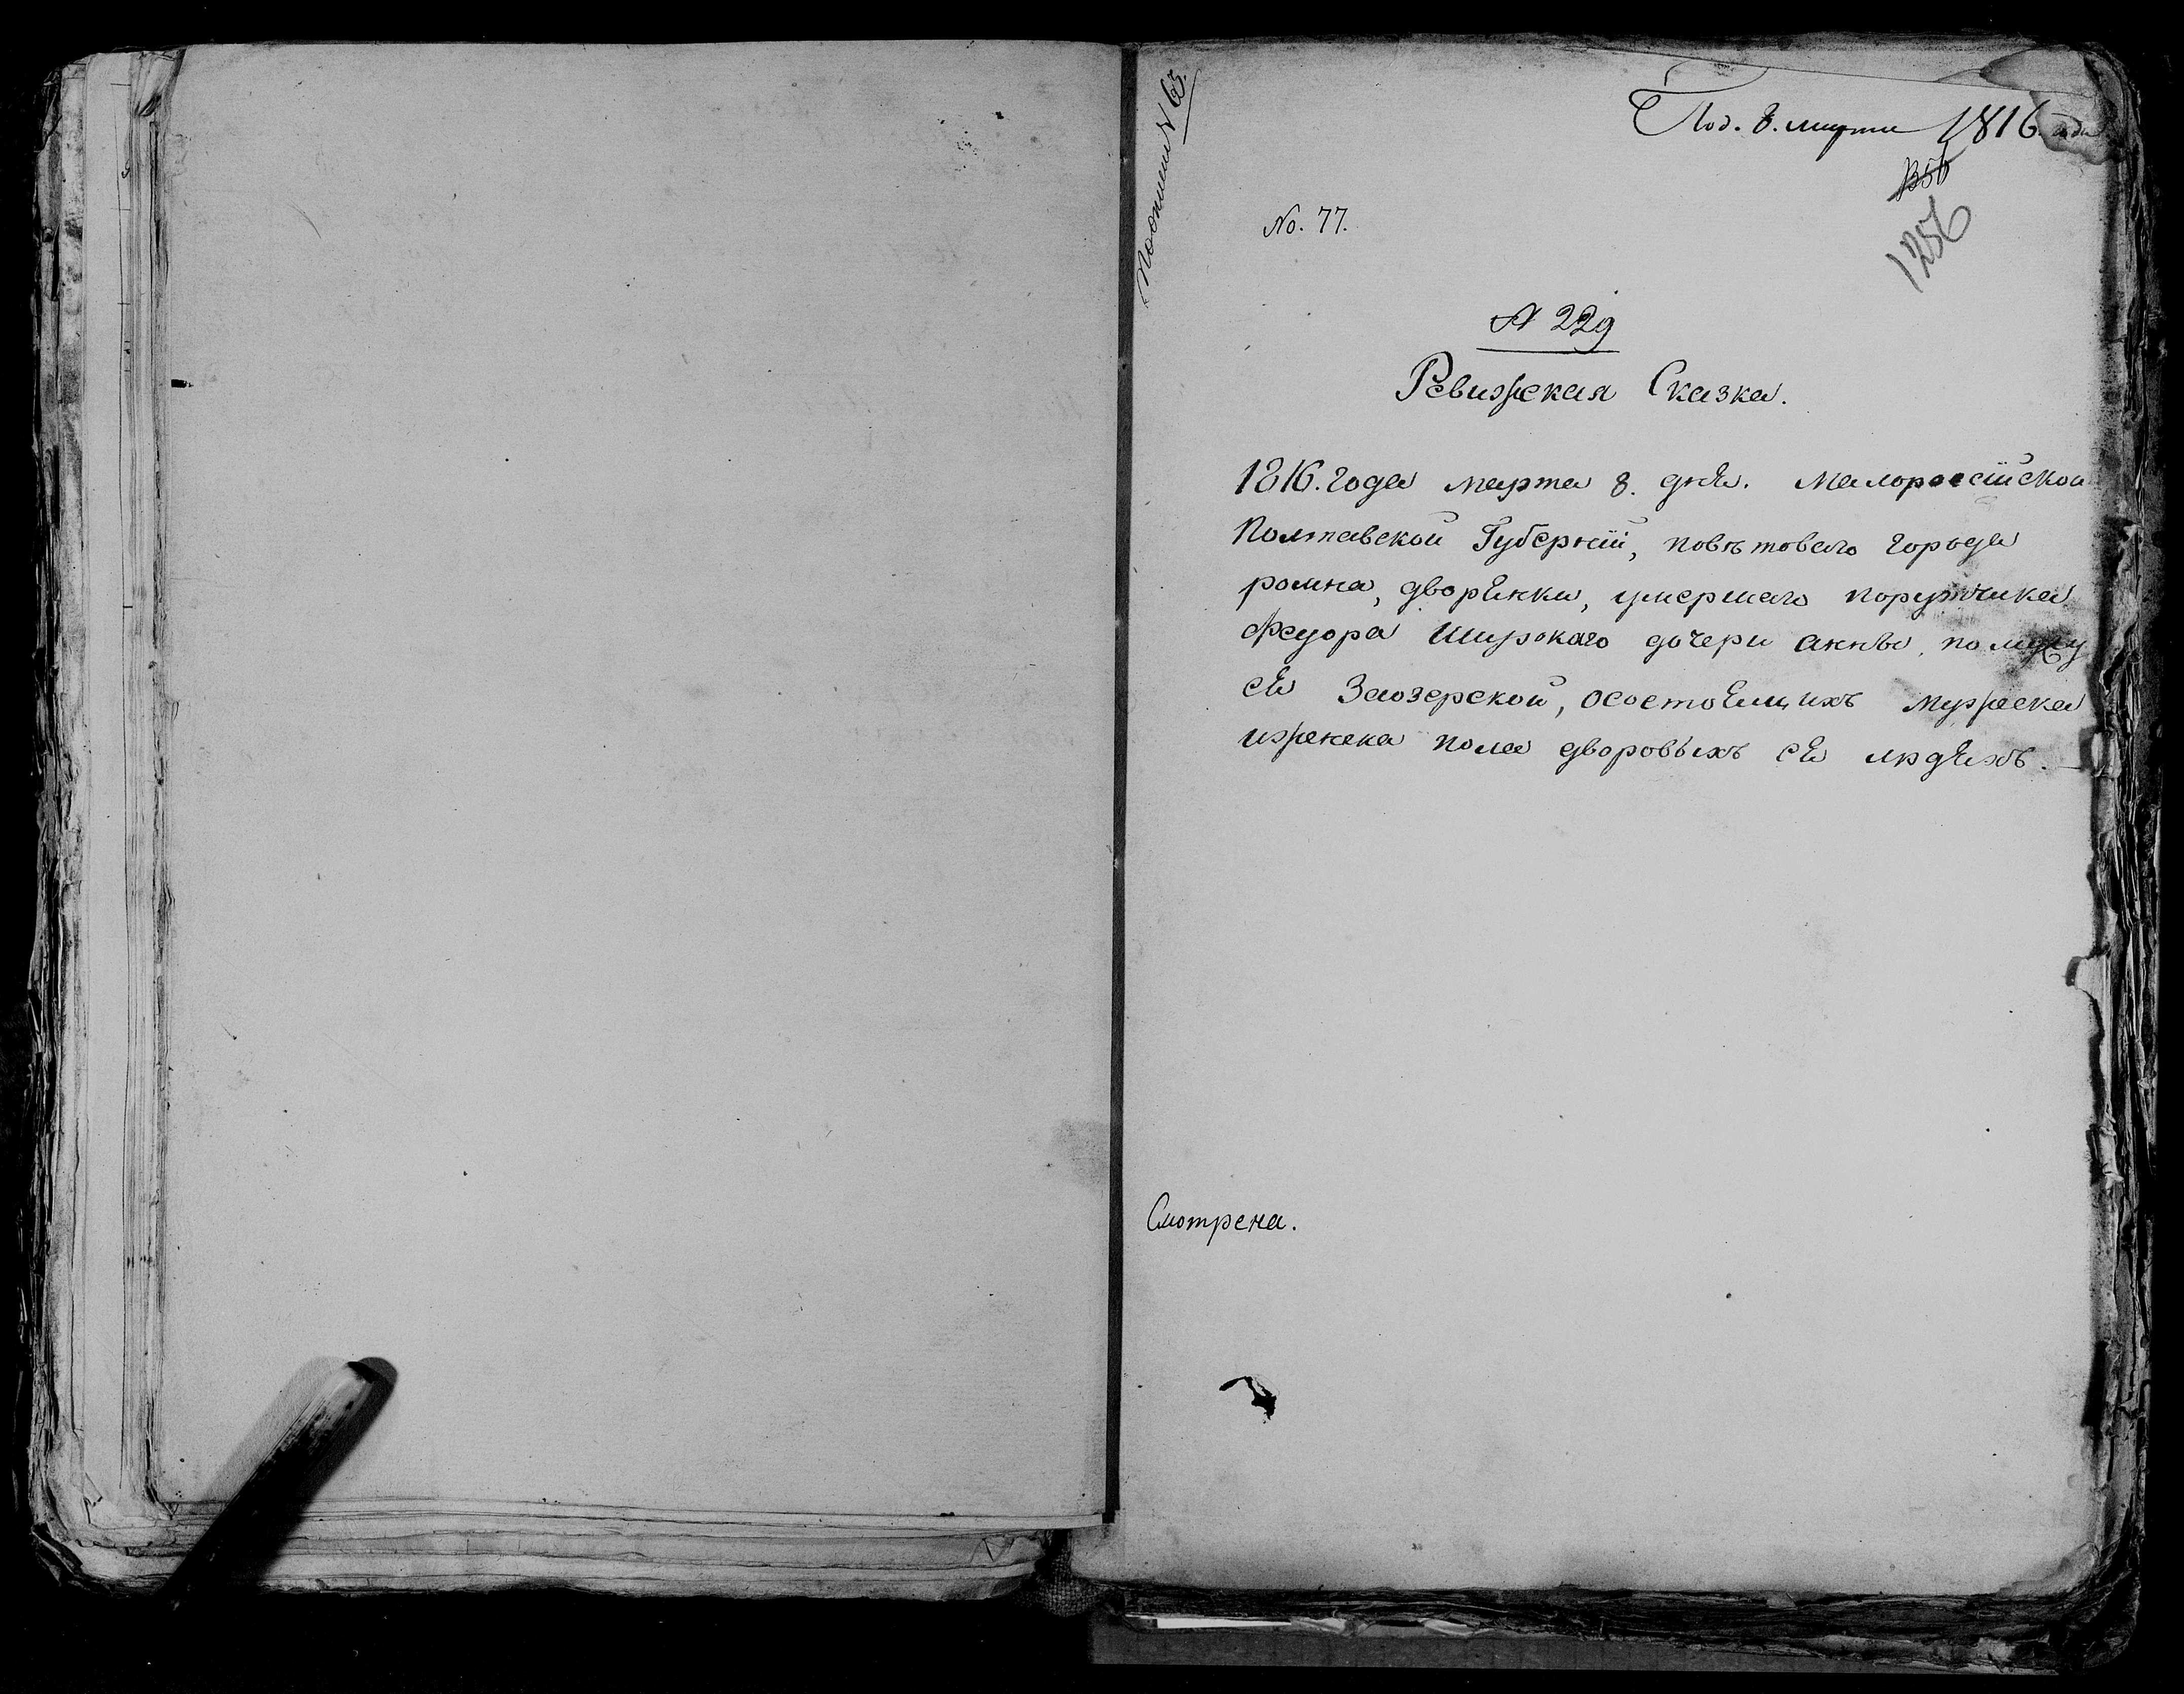 Под. 8. марта 1816. года
1256
No. 77.
№ 229
Ревижская Сказка.
1816. года марта 8. дня. Малороссійской
Полтавской Губерніи, повѣтоваго города
ромна, дворянки, умершаго порутчика
Феудора Широкаго дочери анны, по мужу
ея Заозерской, осостоящихъ мужеска
иженска пола дворовыхъ ея людяхъ.
Смотрена.